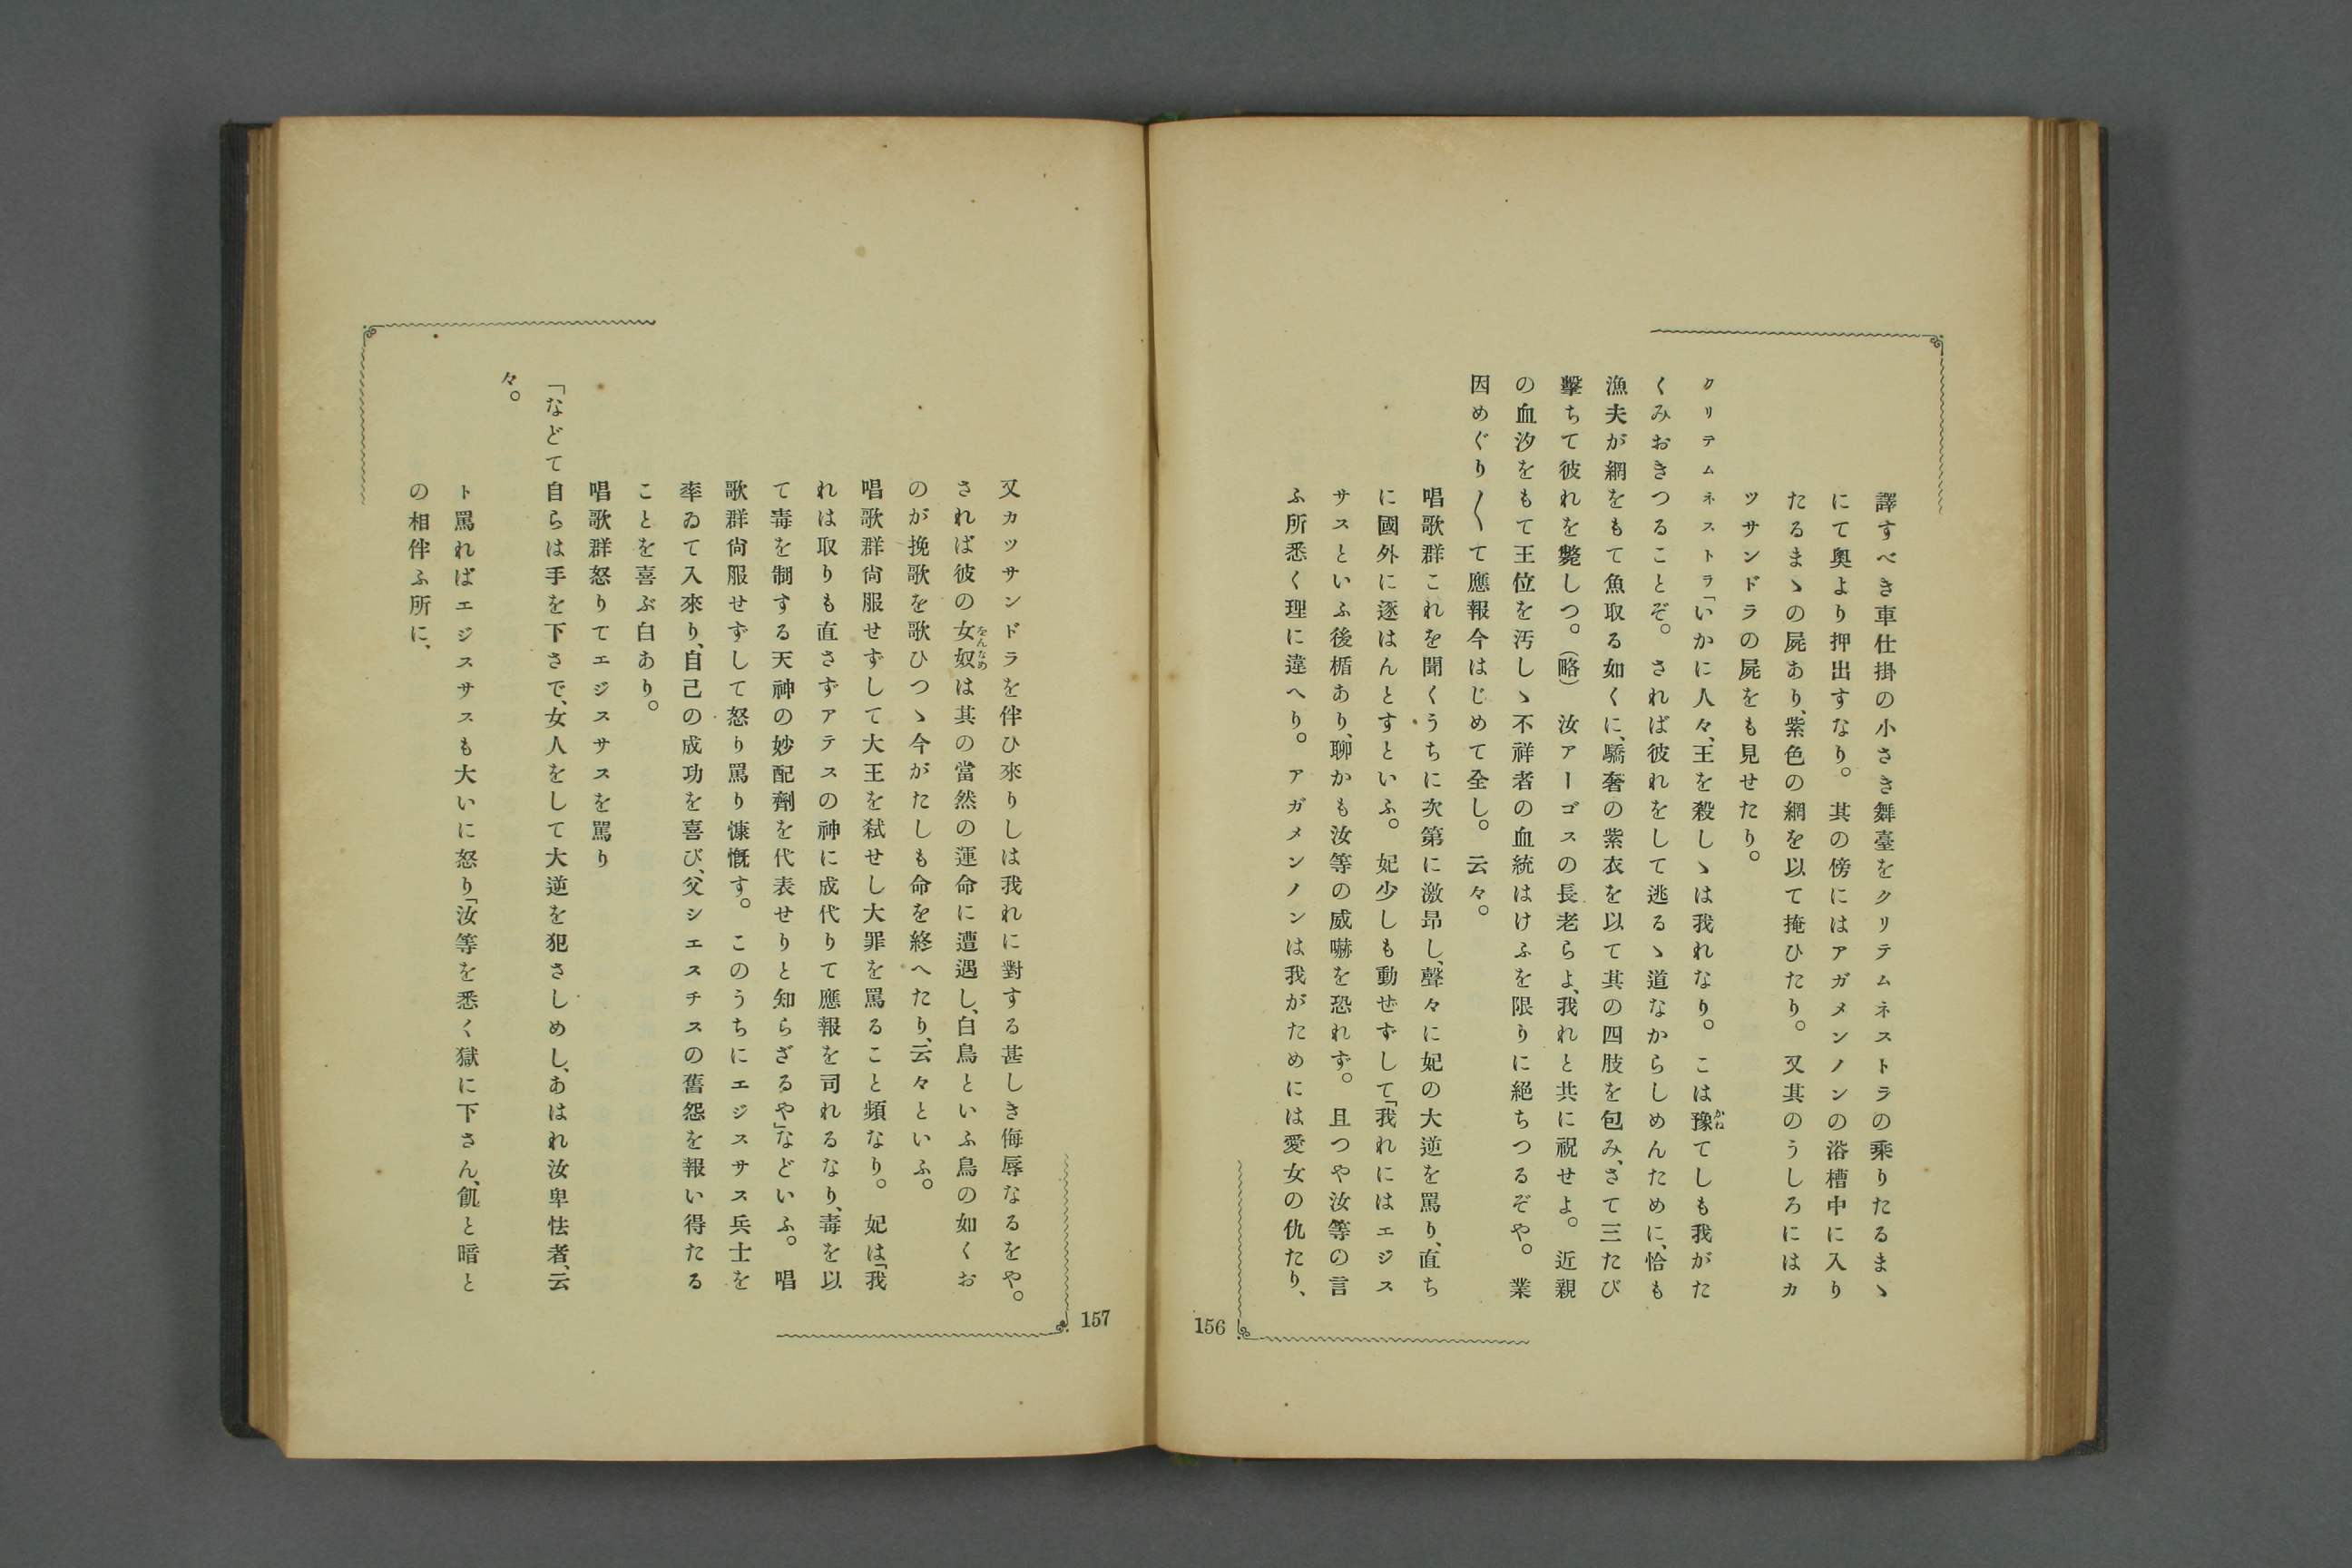 譯すべき車仕掛の小さき舞臺をクリテムネストラの乘りたるまゝ
にて奧より押出すなり。其の傍にはアガメンノンの浴槽中に入り
たるまゝの屍あり、紫色の網を以て掩ひたり。又其のうしろにはカ
ッサンドラの屍をも見せたり。
クリテムネストラ「いかに人々、王を殺しゝは我れなり。こは豫てしも我がた
くみおきつることぞ。されば彼れをして逃るゝ道なからしめんために、恰も
漁夫が網をもて魚取る如くに、驕奢の紫衣を以て其の四肢を包み、さて三たび
擊ちて彼れを斃しつ。(略)汝アーゴスの長老らよ、我れと共に祝せよ。近親
の血汐をもて王位を汚しゝ不祥者の血統はけふを限りに絕ちつるぞや。業
因めぐり〱て應報今はじめて全し。云々。
唱歌群これを聞くうちに次第に激昂し、聲々に妃の大逆を罵り、直ち
に國外に逐はんとすといふ。妃少しも動ぜずして「我れにはエジス
サスといふ後楯あり、聊かも汝等の威嚇を恐れず。且つや汝等の言
ふ所悉く理に違へり。アガメンノンは我がためには愛女の仇たり、
156
又カッサンドラを伴ひ來りしは我れに對する甚しき侮辱なるをや。
されば彼の女奴は其の當然の運命に遭遇し、白鳥といふ鳥の如くお
のが挽歌を歌ひつゝ今がたしも命を終へたり、云々といふ。
唱歌群尙服せずして大王を弑せし大罪を罵ること頻なり。妃は「我
れは取りも直さずアテスの神に成代りて應報を司れるなり、毒を以
て毒を制する天神の妙配劑を代表せりと知らざるや」などいふ。唱
歌群尙服せずして怒り罵り慷慨す。このうちにエジスサス兵士を
率ゐて入來り、自己の成功を喜び、父シエスチスの舊怨を報い得たる
ことを喜ぶ白あり。
唱歌群怒りてエジスサスを罵り
「などて自らは手を下さで、女人をして大逆を犯さしめし、あはれ汝卑怯者、云
々。
ト罵ればエジスサスも大いに怒り「汝等を悉く獄に下さん、飢と暗と
の相伴ふ所に、
157